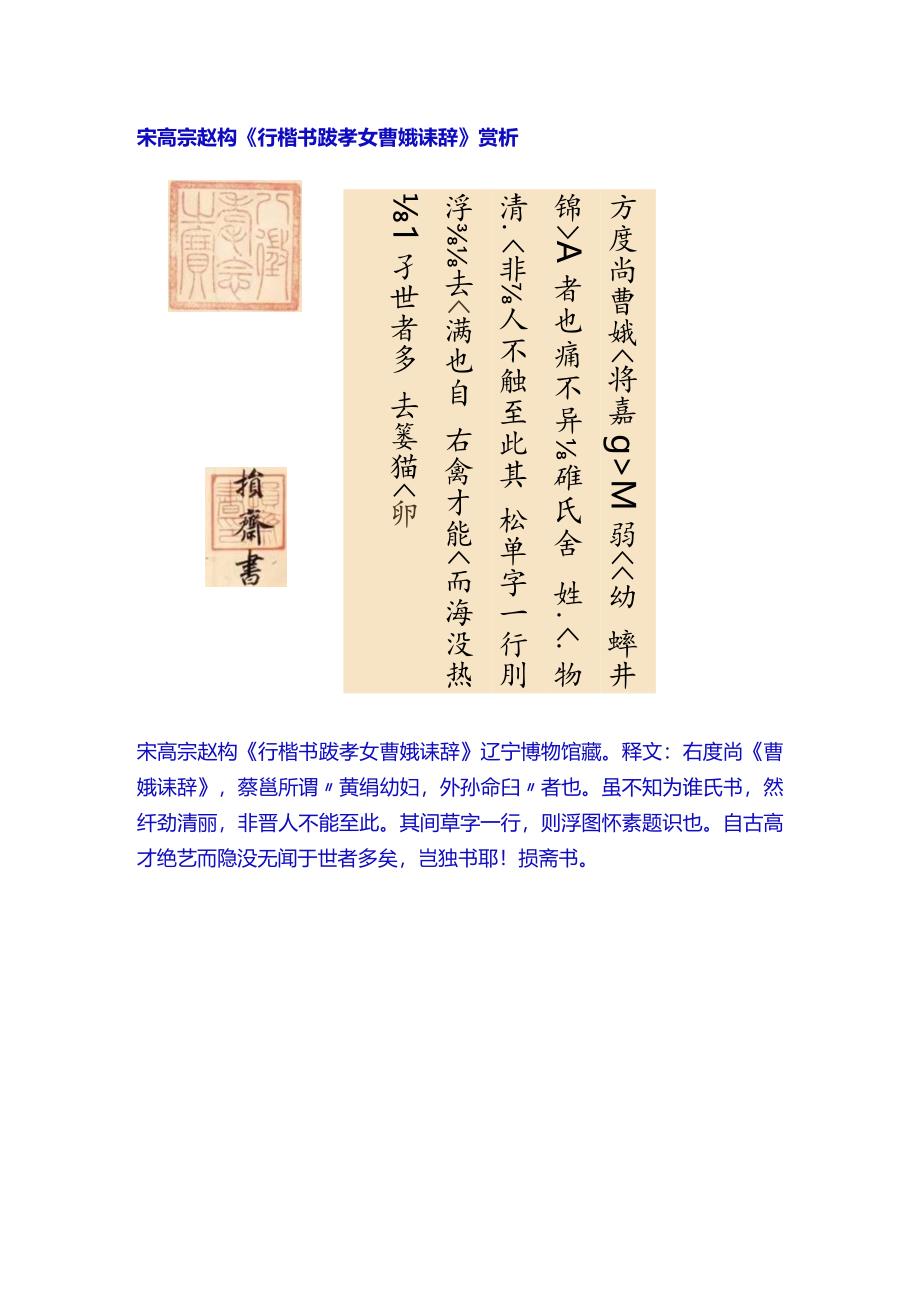 宋高宗赵构《行楷书跋孝女曹娥诔辞》赏析
八徵
耄念
之寶
方度尚曹娥<将嘉 g>M 弱<<幼 蟀井
锦>A 者也痛不异⅛碓氏舍 姓.<.物
清.<非⅞人不触至此其 松单字一行刖
浮⅜⅛去<满也自 右禽才能<而海没热
⅛1 孑世者多 去篓猫<卵
損齋書
宋高宗赵构《行楷书跋孝女曹娥诔辞》辽宁博物馆藏。释文：右度尚《曹
娥诔辞》，蔡邕所谓〃黄绢幼妇，外孙命臼〃者也。虽不知为谁氏书，然
纤劲清丽，非晋人不能至此。其间草字一行，则浮图怀素题识也。自古高
才绝艺而隐没无闻于世者多矣，岂独书耶！损斋书。